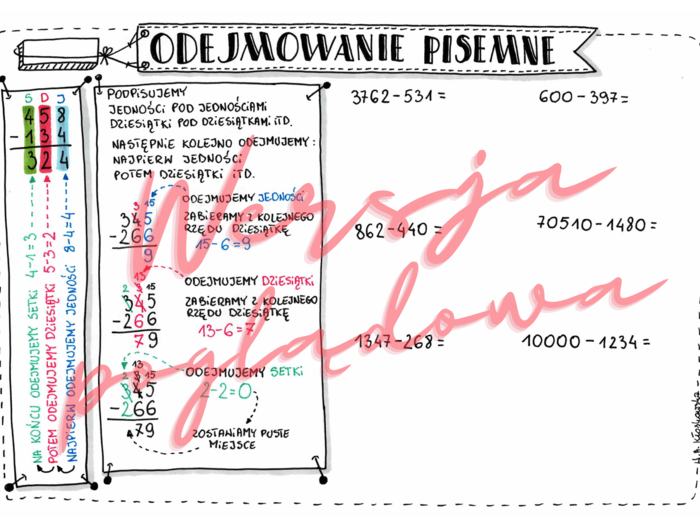 ODEJMOWANIE PISEMNE
S D J
458
-134
324
NA KOŃCU ODEJMUJEMY SETKI 4-1=3
POTEM ODEJMUJEMY DZIESIĄTKI 5-3=2
NAJPIERW ODEJMUJEMY JEDNOŚCI 8-4=4
PODPISUJEMY
JEDNOŚCI POD JEDNOŚCIAMI
DZIESIĄTKI POD DZIESIĄTKAMI ITD.
NASTĘPNIE KOLEJNO ODEJMUJEMY:
NAJPIERW JEDNOŚCI
POTEM DZIESIĄTKI ITD.
ODEJMUJEMY JEDNOŚCI
3 15
345
-266
9
ZABIERAMY Z KOLEJNEGO
RZĘDU DZIESIĄTKĘ
15-6=9
ODEJMUJEMY DZIESIĄTKI
13
2 3 15
345
-266
79
ZABIERAMY Z KOLEJNEGO
RZĘDU DZIESIĄTKĘ
13-6=7
ODEJMUJEMY SETKI
13
2 3 15
345
-266
79
2-2=0
ZOSTAWIAMY PUSTE
MIEJSCE
3762-531=
600-397=
862-440=
70510-1480=
1347-268=
10000-1234=
Wersja
poglądowa